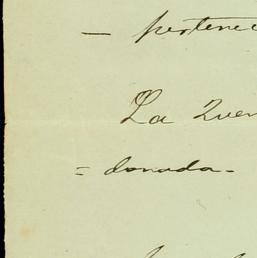 — pertenec
La Quer
= donada.